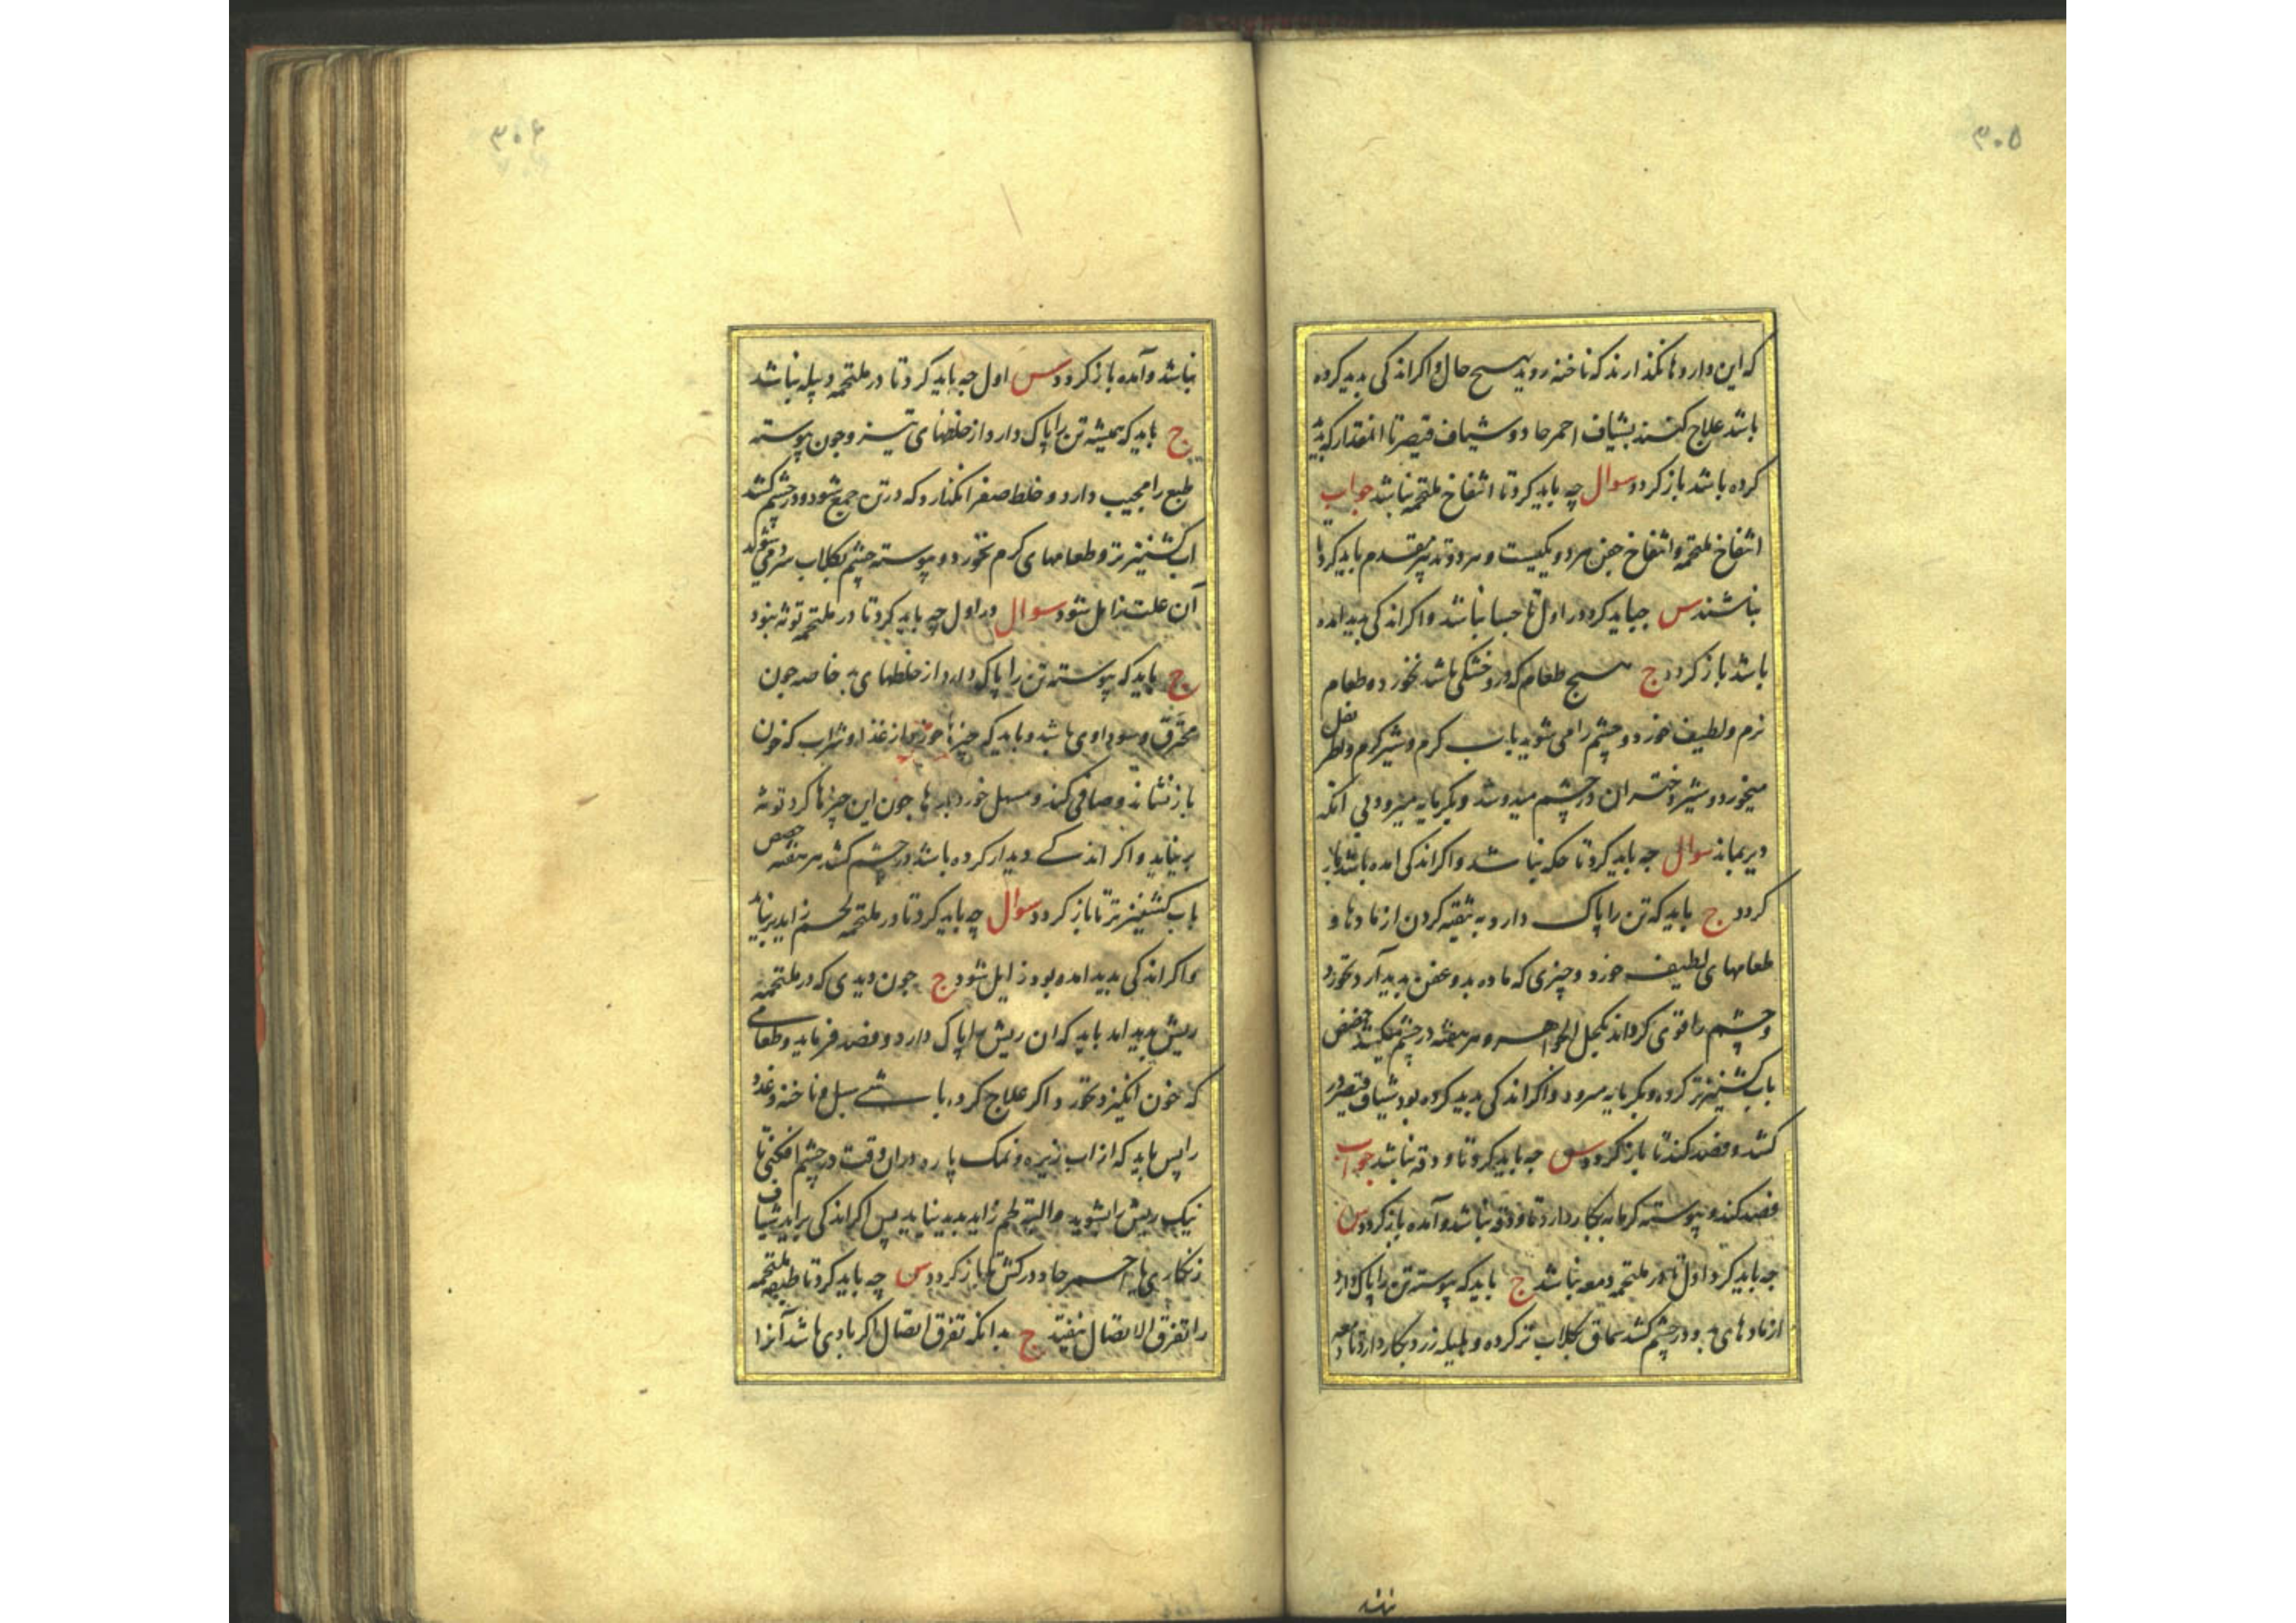 ۳۰۵
که این داروها نکذارند که ناخنه روید بهیچ حال و اکر اندکی بدید کرده
باشد علاج کنند بشیاف احمر حاد و شیاف قیصر تا انمقدار که بدید
کرده باشد باز کردد سوال چه باید کرد تا انتفاخ ملتحمه نباشد جواب
انتفاخ ملتحمه و انتفاخ جفن هر دو یکیست و هر دو تدبیر مقدم باید کرد تا
نباشند س چباید کرد در اول تا جسا نباشد و اکر اندکی بدید امده
باشد باز کردد ج هیچ طعام که در و خشکی باشد نخورد و طعام
نرم و لطیف خورد و چشم را می شوید باب کرم و شیر کرم و نقل
میخورد و شیر دختران در چشم میدوشد و بکرمابه میرود بی انکه
دیر بماند سوال چه باید کرد تا حکه نباشد و اکر اندکی امده باشد باز
کردد ج باید که تن را پاک دارد به تنقیه کردن از مادتها و
طعامهای لطیف خورد و چیزی که ماده بد و عفن بدید آرد نخورد
و چشم را قوی کرداند بکحل الجواهر و هر هفته در چشم میکشد حضض
باب کشنیز تر کرده و بکرمابه میرود و اکر اندکی بدید کرده بود شیاف قیصر در
کشد و فصد کند تا باز کردد س چه باید کرد تا ودقه نباشد جواب
فصد کند و پیوسته کرمابه بکار دارد تا ودقه نباشد و آمده باز کردد س
چه باید کرد اول تا در ملتحمه دمعه نباشد ج باید که پیوسته تن را پاک دارد
از مادهای بد و در چشم کشد سماق بکلاب تر کرده و هلیله زرد بکار دارد تا دمعه
۳۰۶
نباشد و آمده باز کردد س اول چه باید کرد تا در ملتحمه دبیله نباشد
ج باید که همیشه تن را پاک دارد از خلطهای تیز و چون پیوسته
طبع را مجیب دارد و خلط صفرا نکذارد که در تن جمع شود و در چشم کشد
اب کشنیز تر و طعامهای کرم نخورد و پیوسته چشم بکلاب سرد می شوید
آن علت زایل شود سوال در اول چه باید کرد تا در ملتحمه توثه نبود
ج باید که پیوسته تن را پاک دارد از خلطهای بد خاصه چون
محترق و سوداوی باشد و باید که چیزها خورد از غذا و شراب که خون
باز نشاند و صافی کند و مسهل خورد بارها چون این چیزها کرد توثه
بر نیاید و اکر اندکی دیدار کرده باشد در چشم کشد هر هفته حضض
باب کشنیز تر تا باز کردد سوال چه باید کرد تا در ملتحمه لحم زاید بر نیاید
و اکر اندکی بدید امده بود زایل شود ج چون دیدی که در ملتحمه
ریش بدید امد باید که ان ریش را پاک دارد و فصد فرماید و طعامی
که خون انکیزد نخورد و اکر علاج کرده باشی سبل و ناخنه و غده
را پس باید که از اب زیره و نمک پاره در ان وقت در چشم افکنی تا
نیک ریش را بشوید و البته لحم زاید بدید نیاید پس اکر اندکی بر اید شیاف
زنکاری یا احمر حاد در کش تا باز کردد س چه باید کرد تا طبقه ملتحمه
را تفرق الاتصال نیفتد ج بدانکه تفرق اتصال اکر بادی باشد آنرا